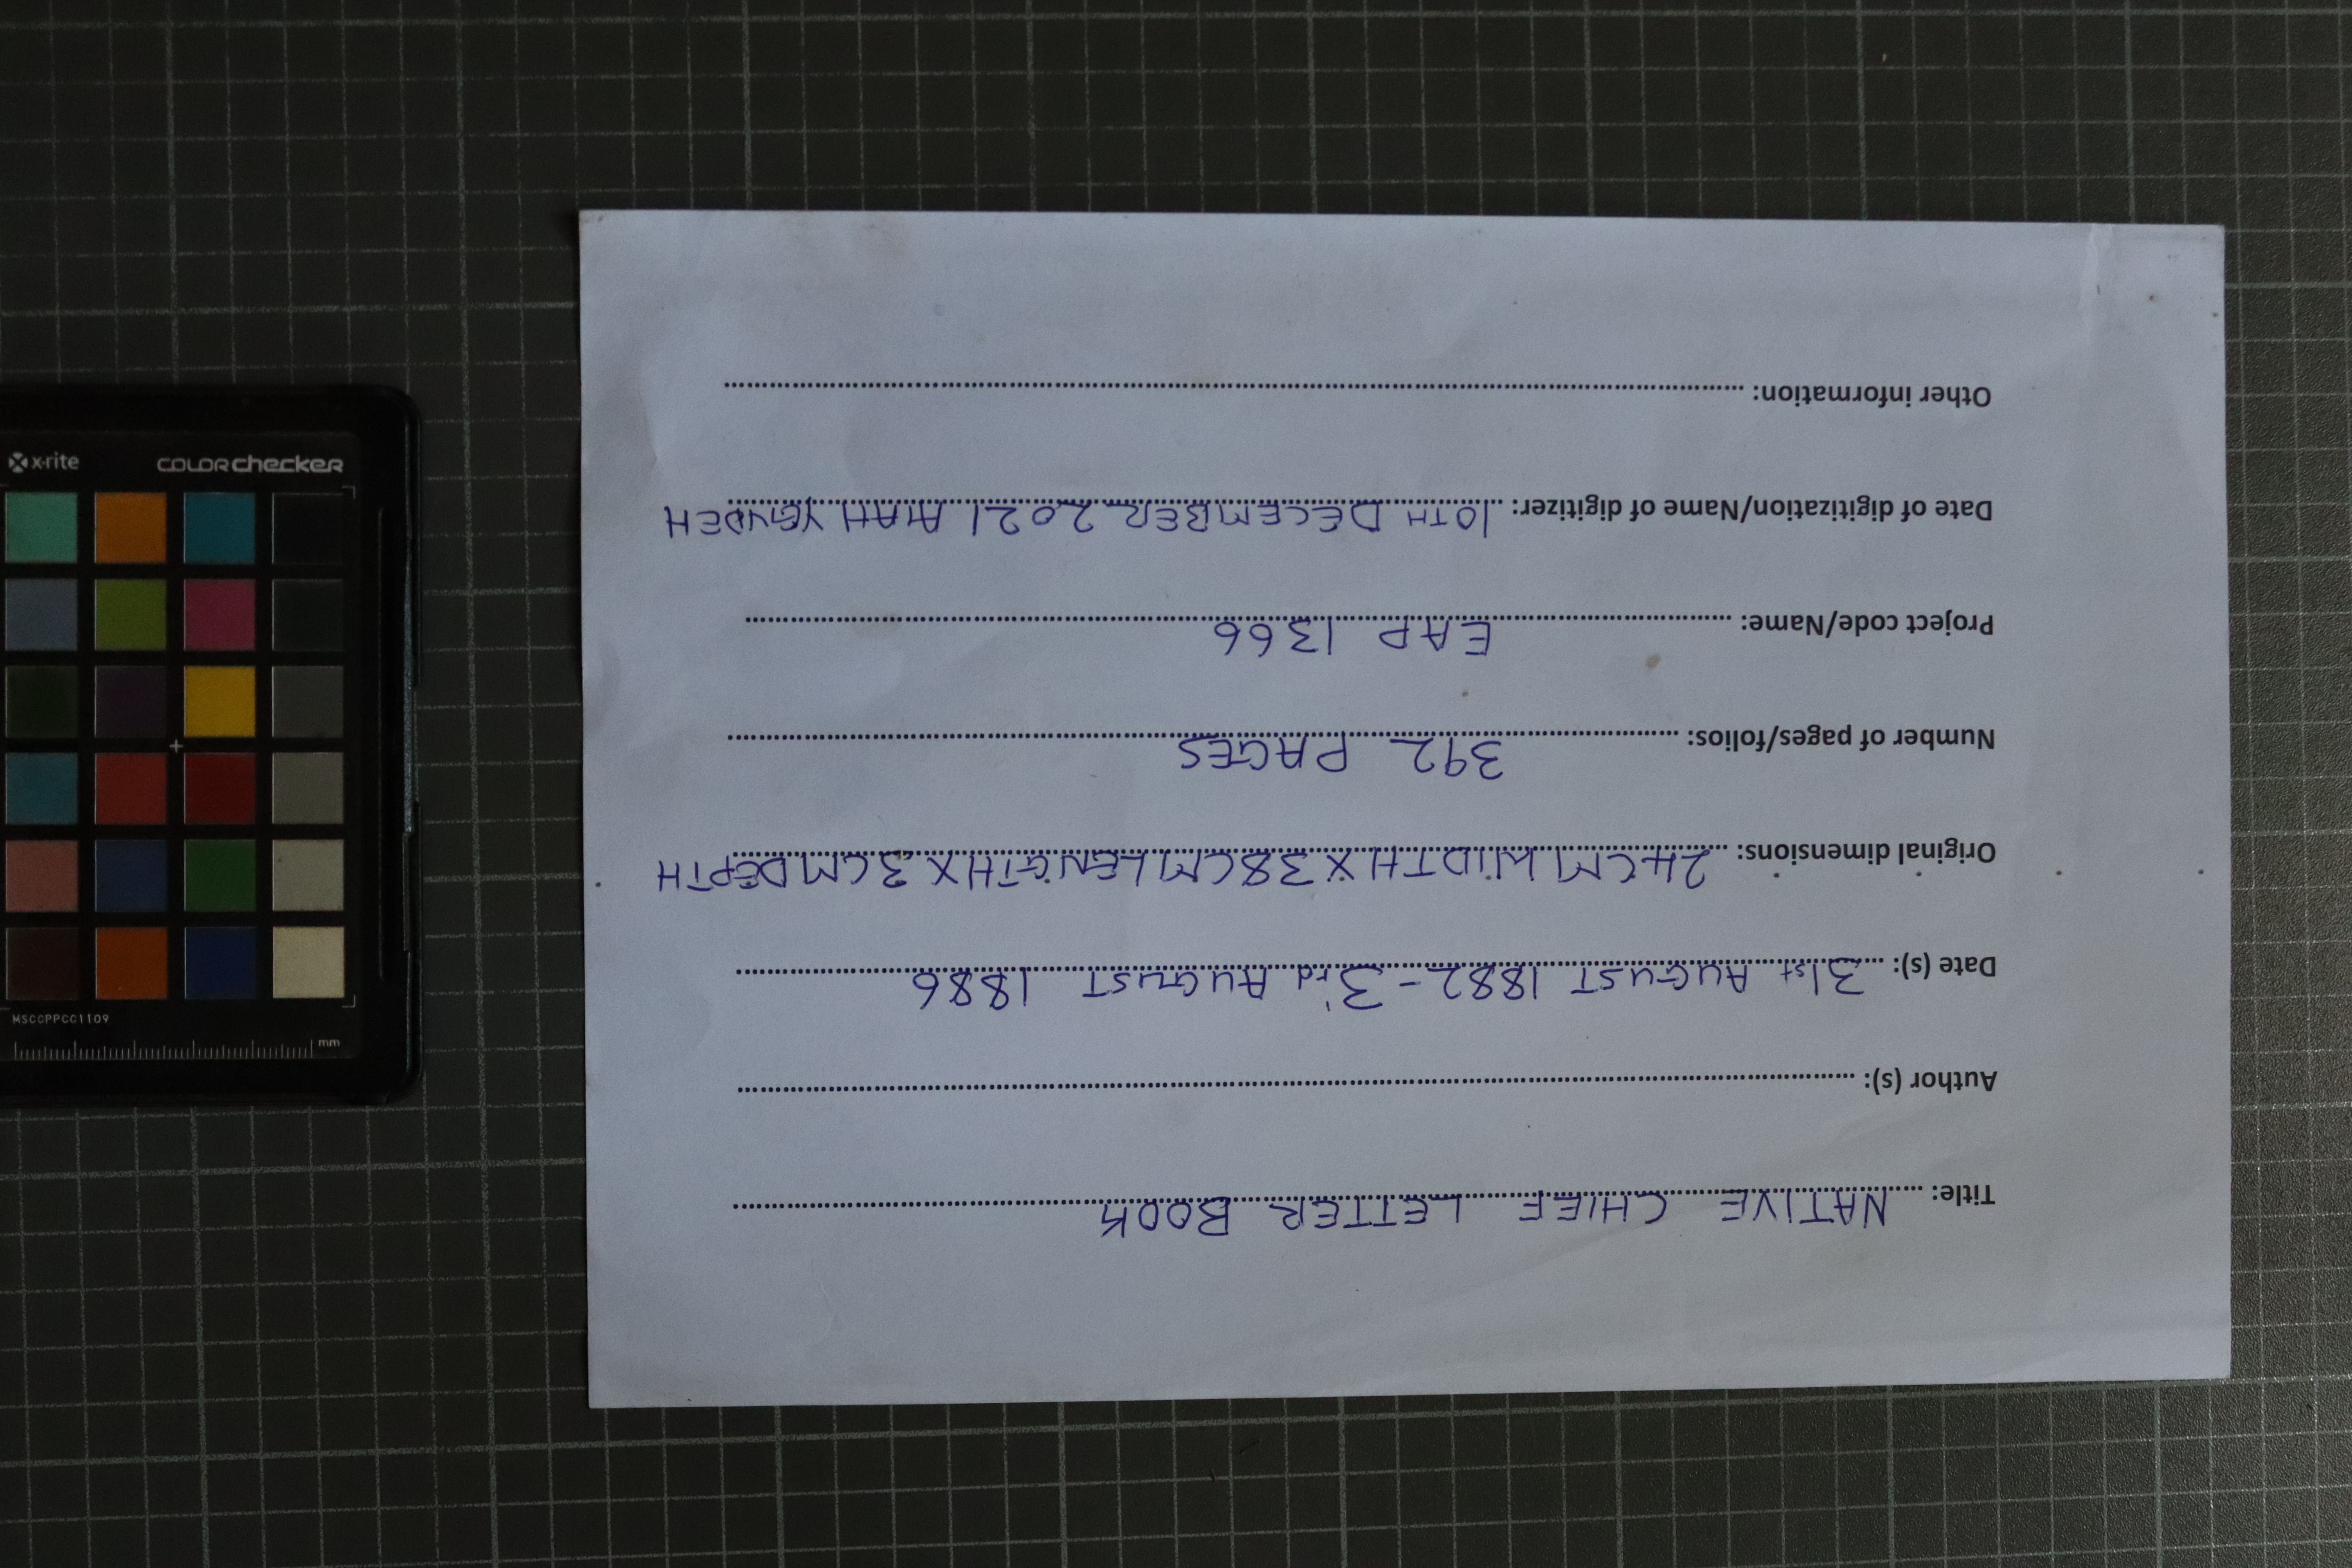 Title: NATIVE CHIEF LETTER BOOK
Author (s):
Date (s): 31st AUGUST 1882 - 3rd AUGUST 1886
Original dimensions: 24CM WIDTH X 38CM LENGTH X 3CM DEPTH
Number of pages/folios: 392 PAGES
Project code/Name: EAP 1366
Date of digitization/Name of digitizer: 10TH DECEMBER 2021
Other information:
x-rite colorchecker
MSCCPPCC1109
mm